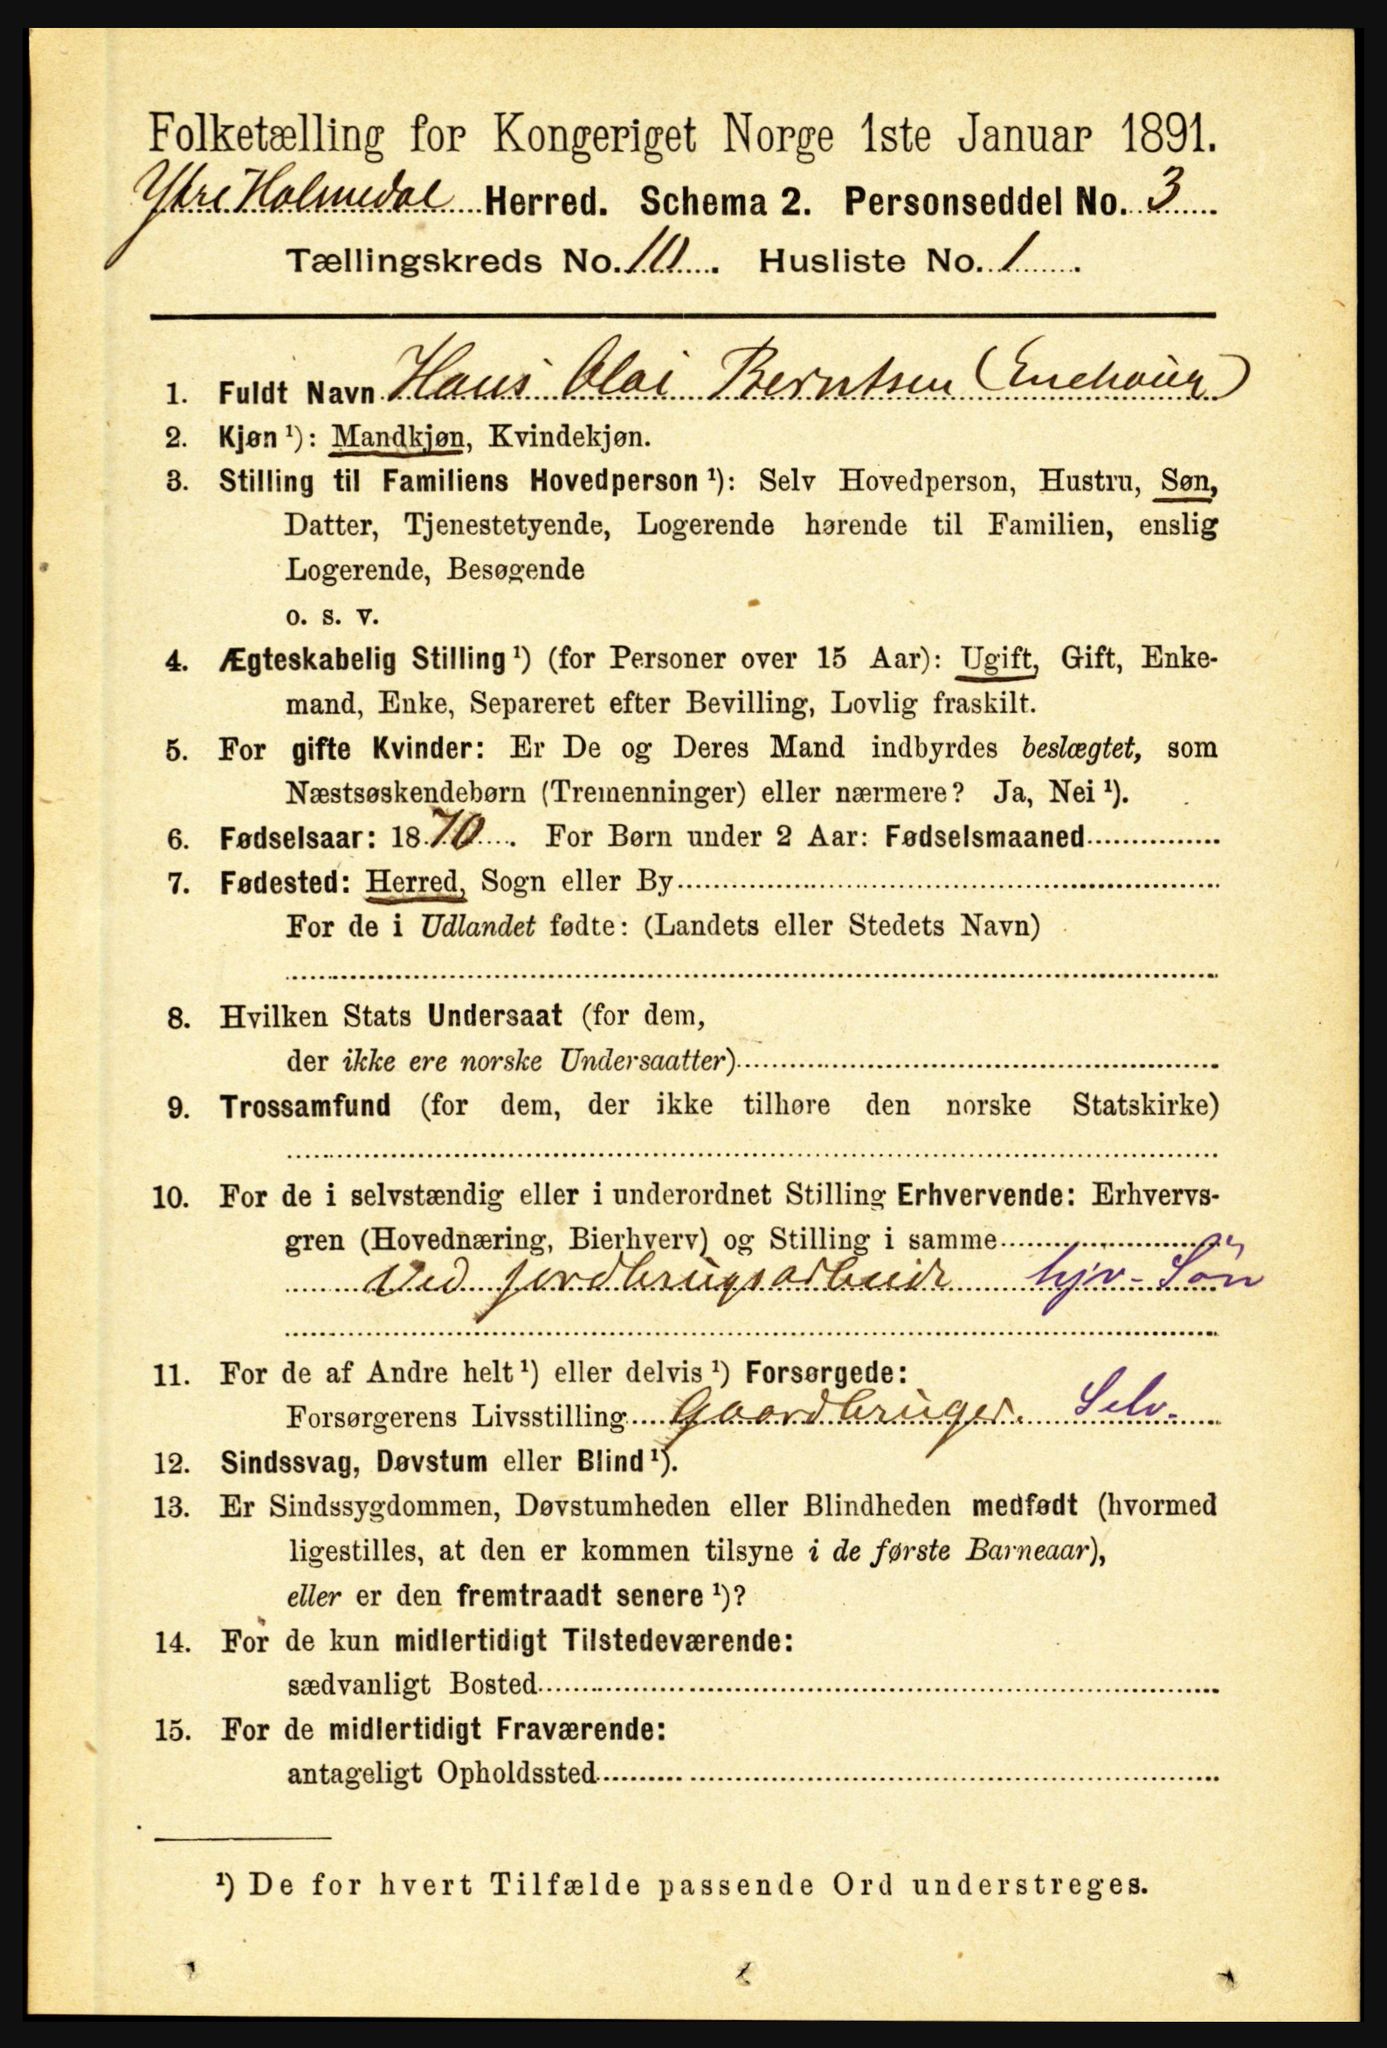 Folketælling for Kongeriget Norge 1ste Januar 1891.
Ytre Holmedal Herred. Schema 2. Personseddel No. 3
Tællingskreds No. 10. Husliste No. 1.
1. Fuldt Navn Hans Olai Berntsen
2. Kjøn ¹): Mandkjøn, Kvindekjøn.
3. Stilling til Familiens Hovedperson ¹): Selv Hovedperson, Hustru, Søn,
Datter, Tjenestetyende, Logerende hørende til Familien, enslig
Logerende, Besøgende
o. s. v.
4. Ægteskabelig Stilling ¹) (for Personer over 15 Aar): Ugift, Gift, Enke-
mand, Enke, Separeret efter Bevilling, Lovlig fraskilt.
5. For gifte Kvinder: Er De og Deres Mand indbyrdes beslægtet, som
Næstsøskendebørn (Tremenninger) eller nærmere? Ja, Nei ¹).
6. Fødselsaar: 1870. For Børn under 2 Aar: Fødselsmaaned
7. Fødested: Herred, Sogn eller By
For de i Udlandet fødte: (Landets eller Stedets Navn)
8. Hvilken Stats Undersaat (for dem,
der ikke ere norske Undersaatter)
9. Trossamfund (for dem, der ikke tilhøre den norske Statskirke)
10. For de i selvstændig eller i underordnet Stilling Erhvervende: Erhvervs-
gren (Hovednæring, Bierhverv) og Stilling i samme
Ved jordbrugsarbeide hjv. Søn
11. For de af Andre helt ¹) eller delvis ¹) Forsørgede:
Forsørgerens Livsstilling Gaardbruger. Selv.
12. Sindssvag, Døvstum eller Blind ¹).
13. Er Sindssygdommen, Døvstumheden eller Blindheden medfødt (hvormed
ligestilles, at den er kommen tilsyne i de første Barneaar),
eller er den fremtraadt senere ¹)?
14. For de kun midlertidigt Tilstedeværende:
sædvanligt Bosted
15. For de midlertidigt Fraværende:
antageligt Opholdssted
¹) De for hvert Tilfælde passende Ord understreges.